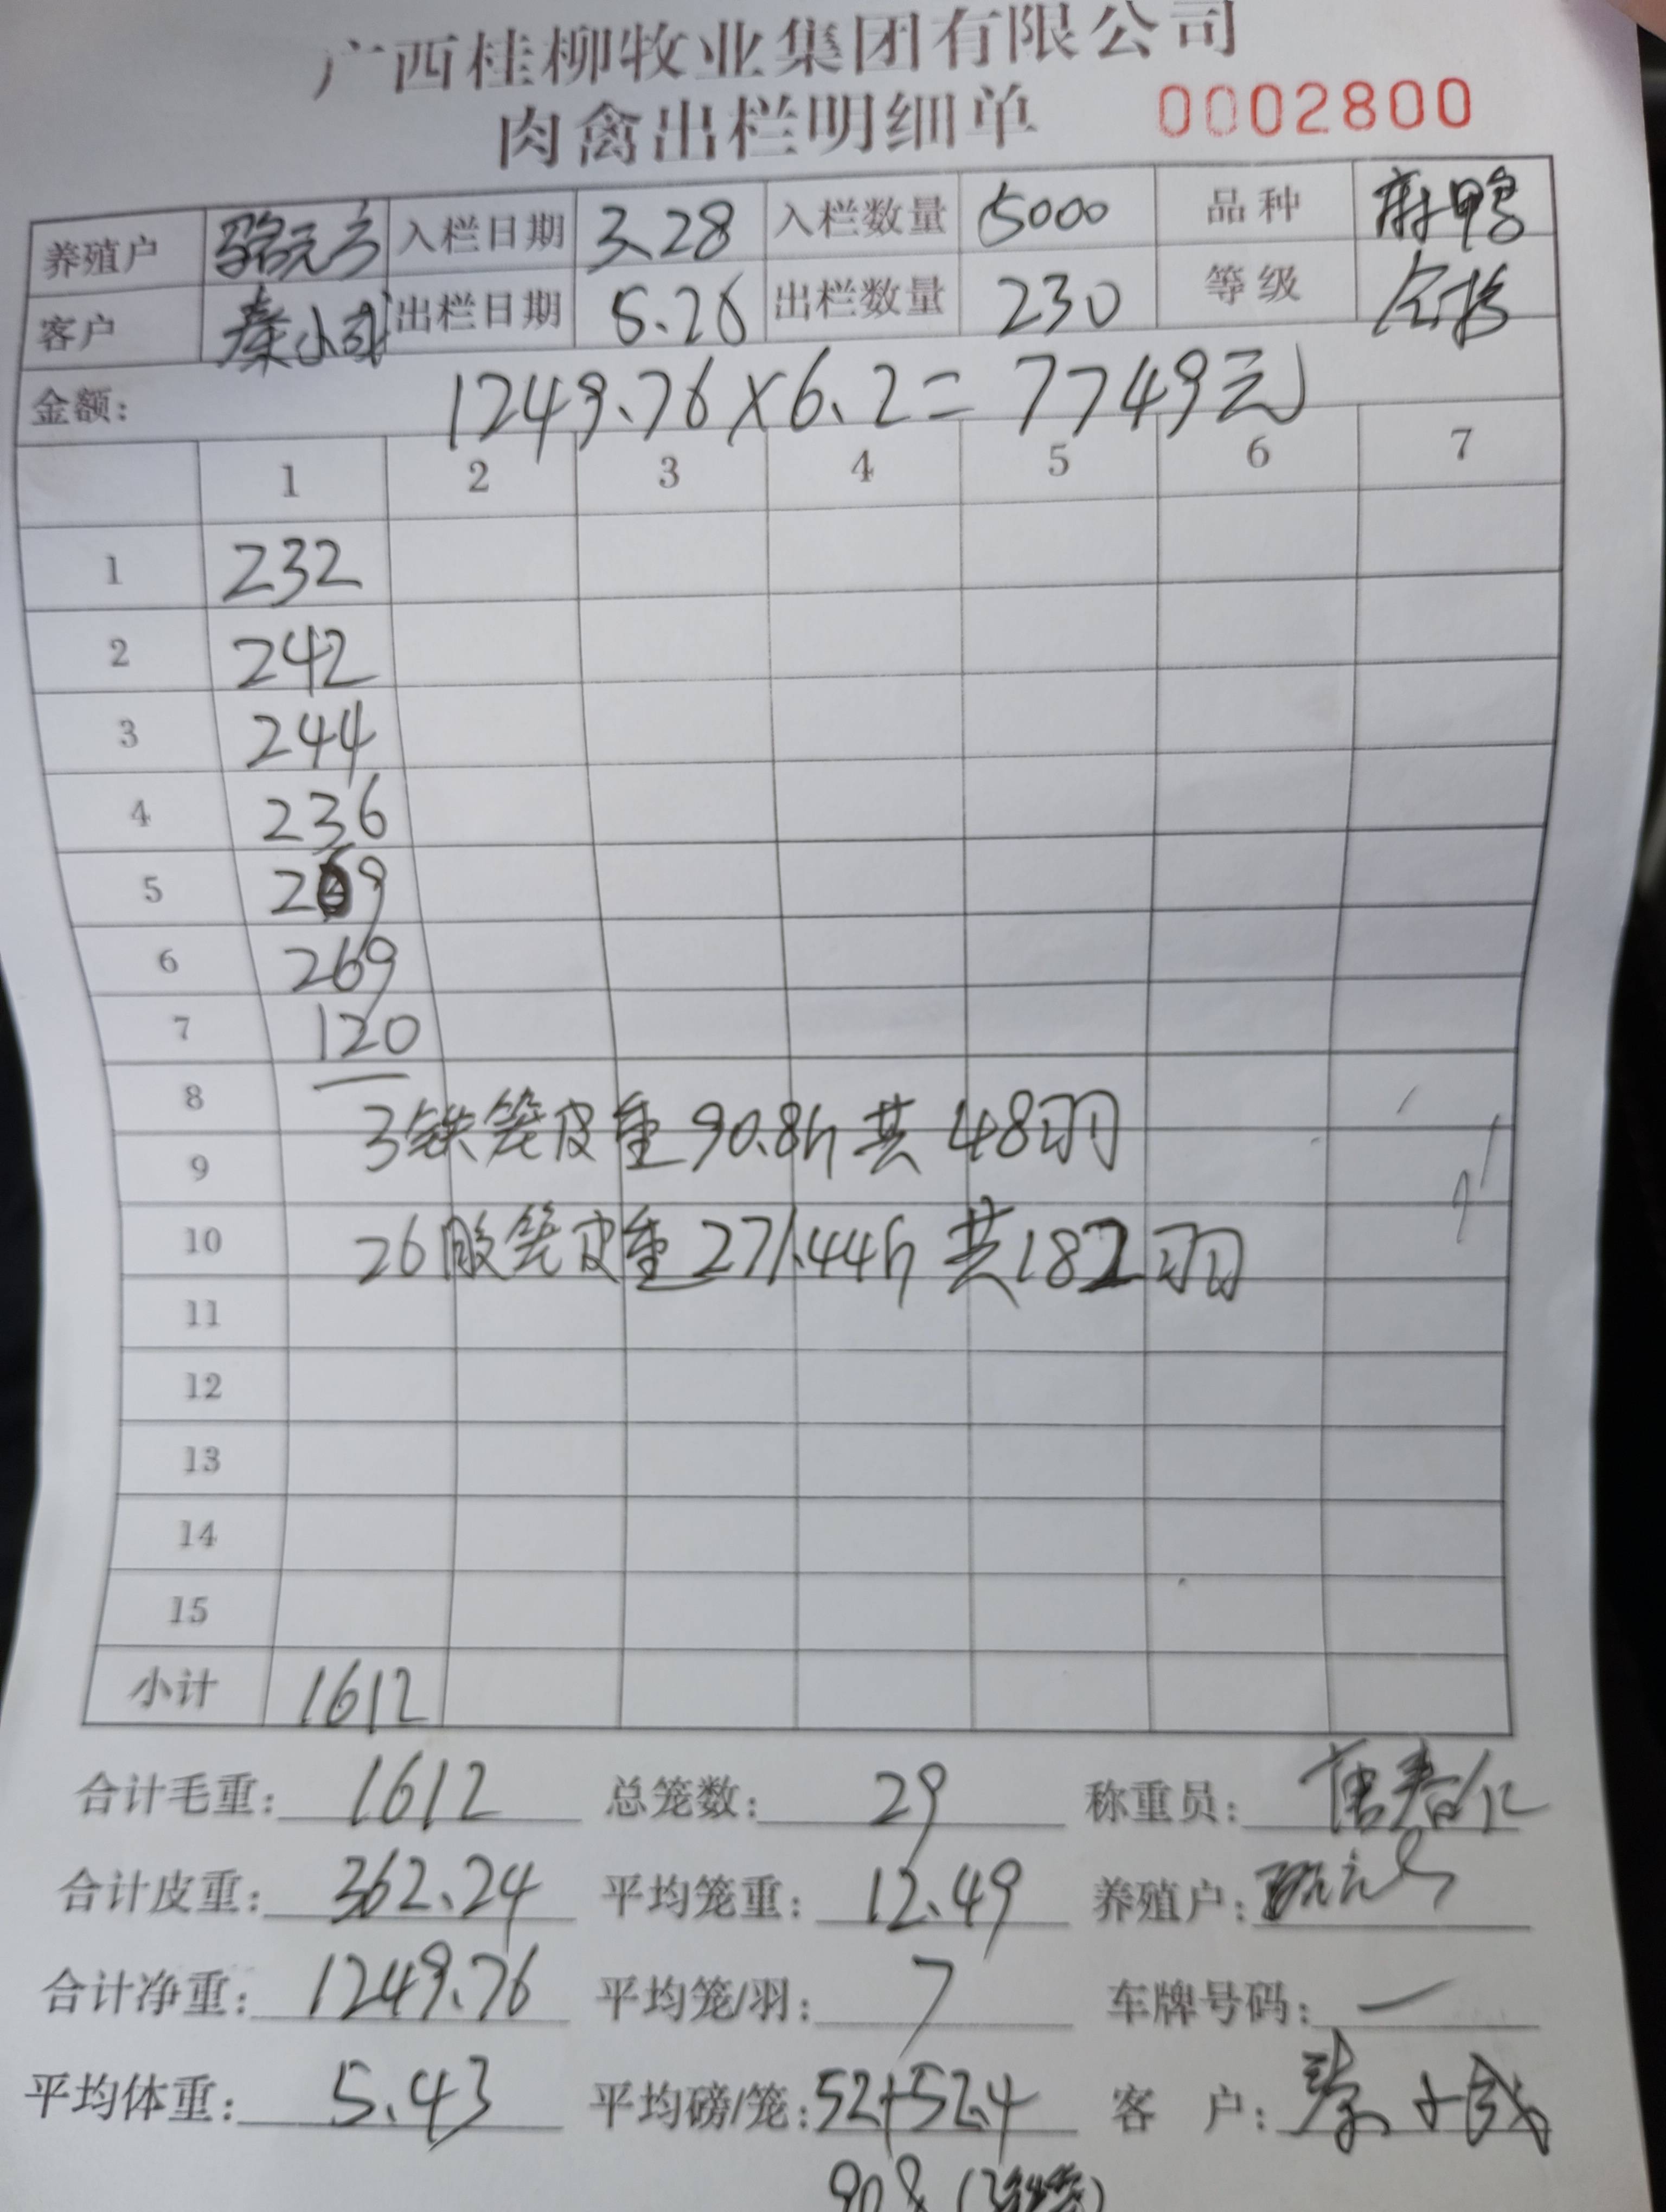 广西桂柳牧业集团有限公司
肉禽出栏明细单 0002800
养殖户 骆元方 入栏日期 3.28 入栏数量 5000 品种 麻鸭
客户 秦小成 出栏日期 5.26 出栏数量 230 等级 合格
金额: 1249.76×6.2=7749元
1 2 3 4 5 6 7
1 232
2 242
3 244
4 236
5 269
6 269
7 120
8
3铁笼皮重90.8斤共48羽
9
10 26胶笼皮重271.44斤共182羽
11
12
13
14
15
小计 1612
合计毛重: 1612 总笼数: 29 称重员:
合计皮重: 362.24 平均笼重: 12.49 养殖户:
合计净重: 1249.76 平均笼/羽: 7 车牌号码: 一
平均体重: 5.43 平均磅/笼: 52+52.4 客户: 秦小成
90.8(3铁笼)